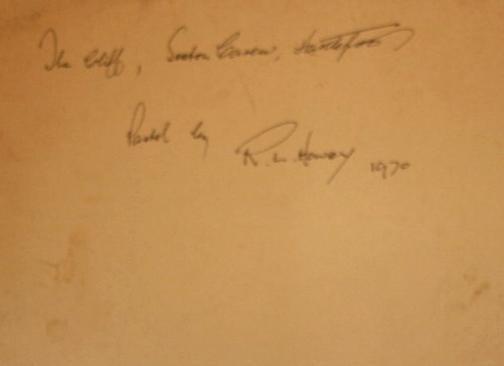 The Cliff, Seaton Carew, Hartlepool
Pastel by R. W. Howey 1970